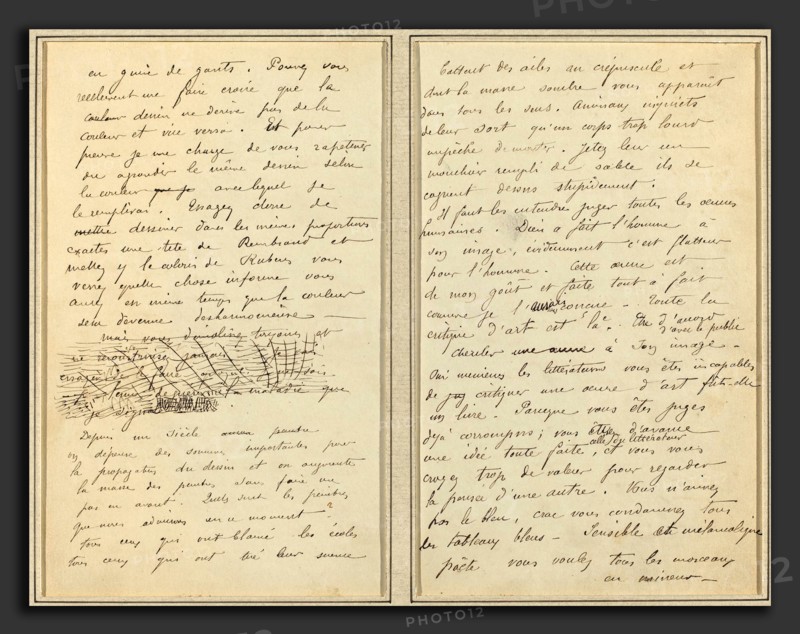 en guise de gants. Pouvez vous
réellement me faire croire que la
couleur dessin ne dérive pas de la
couleur et vice versa. Et pour
preuve je me charge de vous rapetisser
ou agrandir le même dessin selon
la couleur avec lequel je
le remplirai. Essayez donc de
dessiner dans les mêmes proportions
exactes une tête de Rembrand et
mettez y le coloris de Rubens vous
verrez quelle chose informe vous
aurez en même temps que la couleur
sera devenue desharmonieuse
mais vous toujours et
la maladie que
je signale
Depuis un siècle peintre
on dépense des sommes importantes pour
la propagation du dessin et on augmente
la masse des peintres sans faire un
pas en avant. Quels sont les peintres
que nous admirons en ce moment ?
tous ceux qui ont blamé les écoles
tous ceux qui ont tiré leur science
battent des ailes au crépuscule et
dont la masse sombre vous apparait
dans tous les sens. Animaux inquiets
de leur sort qu'un corps trop lourd
empêche de monter. Jetez leur un
mouchoir rempli de sable ils se
cognent dessus stupidement.
Il faut les entendre juger toutes les oeuvres
humaines. Dieu a fait l'homme à
son image, évidemment c'est flatteur
pour l'homme. Cette oeuvre est
de mon goût et faite tout à fait
comme je l'aurais concue. Toute la
critique d'art est là. d'accord
avec le public
chercher une oeuvre à son image.
Oui messieurs les littérateurs vous êtes incapables
de critiquer une oeuvre d'art fut-elle
un livre. Parceque vous êtes juges
déjà corrompus; vous d'avance
une idée toute faite, et vous vous
croyez trop de valeur pour regarder
la pensée d'une autre. Vous n'aimez
pas le bleu, crac vous condamnez tous
les tableaux bleus. Sensible et mélancolique
poète vous voulez tous les morceaux
en mineur
PHOTO12